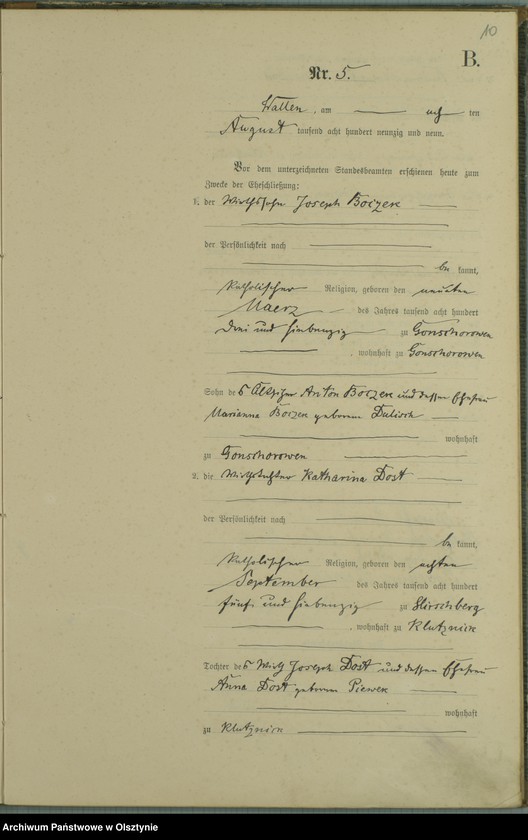 10
B.
Nr. 5.
Wallen, am ach ten
August tausend acht hundert neunzig und neun.
Vor dem unterzeichneten Standesbeamten erschienen heute zum
Zwecke der Eheschließung:
1. der Wirthssohn Joseph Boczek
der Persönlichkeit nach
be kannt,
katholischer Religion, geboren den neunten
Maerz des Jahres tausend acht hundert
drei und siebenzig zu Gonschorowen
, wohnhaft zu Gonschorowen
Sohn des Altsitzer Anton Boczek und dessen Ehefrau
Marianna Boczek geborene
wohnhaft
zu Gonschorowen
2. die Wirthstochter Katharina Dost
der Persönlichkeit nach
be kannt,
katholischer Religion, geboren den achten
September des Jahres tausend acht hundert
fünf und siebenzig zu Hirschberg
, wohnhaft zu Klutznick
Tochter des Wirth Joseph Dost und dessen Ehefrau
Anna Dost geborene Piewek
wohnhaft
zu Klutznick
Archiwum Państwowe w Olsztynie